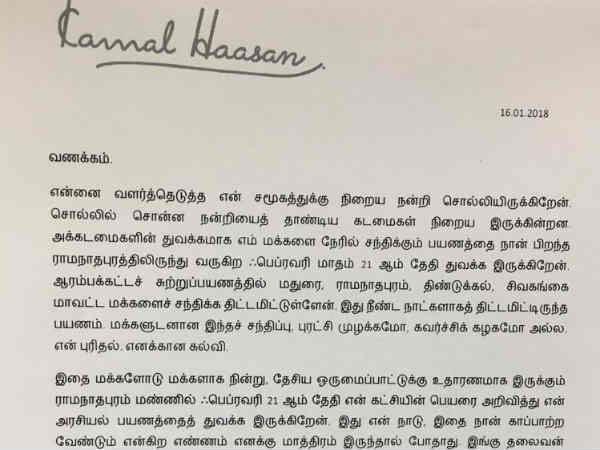 Kamal Haasan
16.01.2018
வணக்கம்.
என்னை வளர்த்தெடுத்த என் சமூகத்துக்கு நிறைய நன்றி சொல்லியிருக்கிறேன்.
சொல்லில் சொன்ன நன்றியைத் தாண்டிய கடமைகள் நிறைய இருக்கின்றன.
அக்கடமைகளின் துவக்கமாக எம் மக்களை நேரில் சந்திக்கும் பயணத்தை நான் பிறந்த
ராமநாதபுரத்திலிருந்து வருகிற ஃபெப்ரவரி மாதம் 21 ஆம் தேதி துவக்க இருக்கிறேன்.
ஆரம்பக்கட்டச் சுற்றுப்பயணத்தில் மதுரை, ராமநாதபுரம், திண்டுக்கல், சிவகங்கை
மாவட்ட மக்களைச் சந்திக்க திட்டமிட்டுள்ளேன். இது நீண்ட நாட்களாகத் திட்டமிட்டிருந்த
பயணம். மக்களுடனான இந்தச் சந்திப்பு, புரட்சி முழக்கமோ, கவர்ச்சிக் கழகமோ அல்ல.
என் புரிதல். எனக்கான கல்வி.
இதை மக்களோடு மக்களாக நின்று, தேசிய ஒருமைப்பாட்டுக்கு உதாரணமாக இருக்கும்
ராமநாதபுரம் மண்ணில் ஃபெப்ரவரி 21 ஆம் தேதி என் கட்சியின் பெயரை அறிவித்து என்
அரசியல் பயணத்தைத் துவக்க இருக்கிறேன். இது என் நாடு, இதை நான் காப்பாற்ற
வேண்டும் என்கிற எண்ணம் எனக்கு மாத்திரம் இருந்தால் போதாது. இங்கு தலைவன்